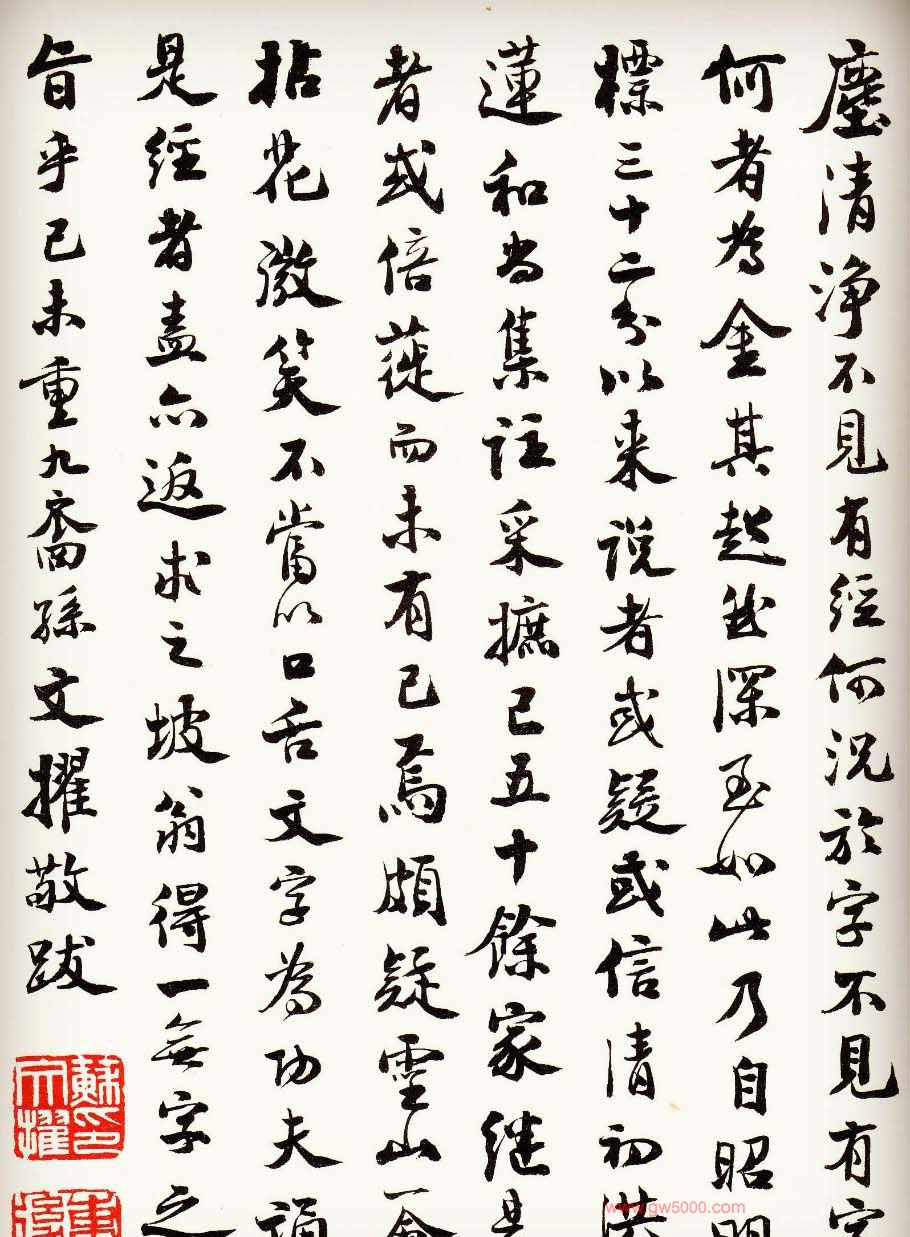 塵清淨不見有經何況於字不見有字
何者為金其超然深至如此乃自昭明
標三十二分以來說者或疑或信清初洪
蓮和尚集註采摭已五十餘家繼是
者或倍蓰而未有已焉頗疑靈山一會
拈花微笑不當以口舌文字為功夫誦
是經者盍亦返求之坡翁得一無字之
旨乎己未重九裔孫文擢敬跋
蘇文擢印
www.gw5000.com